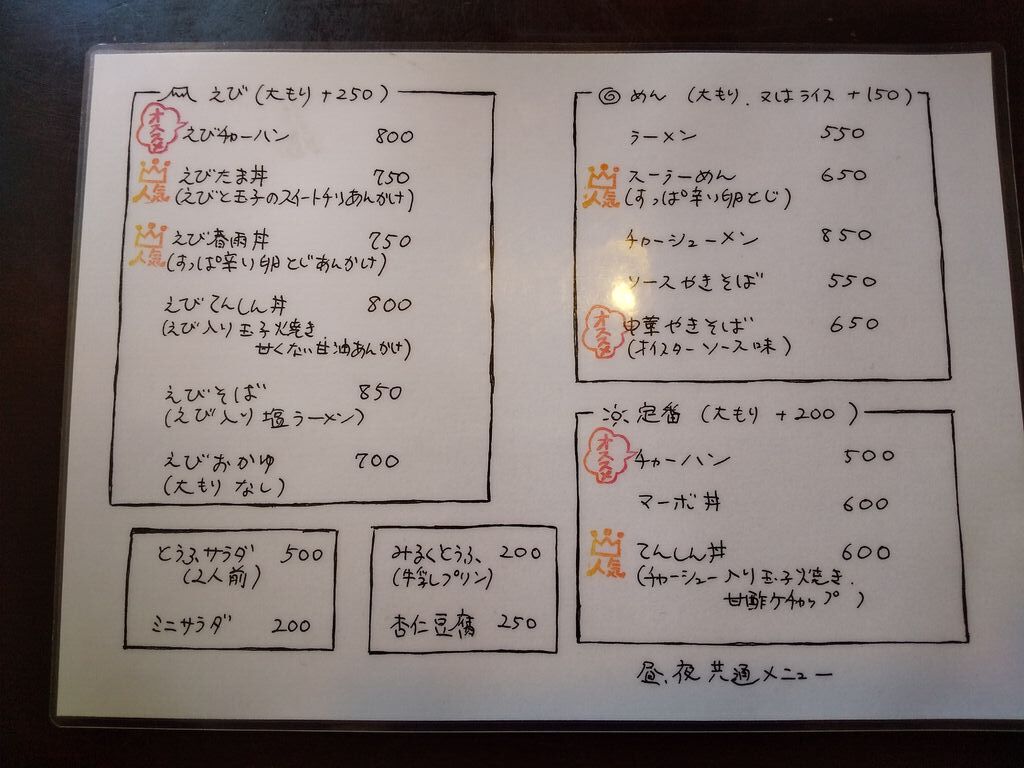 えび (大もり +250)
オススメ えびチャーハン 800
人気 えびたま丼 750
(えびと玉子のスイートチリあんかけ)
人気 えび春雨丼 750
(すっぱ辛い卵とじあんかけ)
えびてんしん丼 800
(えび入り玉子焼き
甘くない甘油あんかけ)
えびそば 850
(えび入り塩ラーメン)
えびおかゆ 700
(大もりなし)
とうふサラダ 500
(2人前)
ミニサラダ 200
みるくとうふ、 200
(牛乳プリン)
杏仁豆腐 250
めん (大もり、又はライス +150)
ラーメン 550
人気 スーラーめん 650
(すっぱ辛い卵とじ)
チャーシューメン 850
ソースやきそば 550
オススメ 中華やきそば 650
(オイスターソース味)
定番 (大もり +200)
オススメ チャーハン 500
マーボ丼 600
人気 てんしん丼 600
(チャーシュー入り玉子焼き、
甘酢ケチャップ)
昼、夜共通メニュー